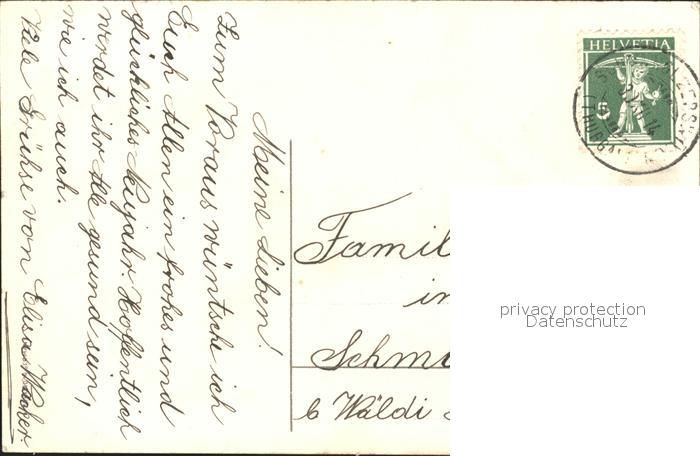 Meine Lieben!
Zum Voraus wüntsche ich
Euch Allen ein frohes und
glückliches Neujahr. Hoffentlich
werdet ihr Alle gesund sein,
wie ich auch.
Viele Grühse von Elisa
HELVETIA
5
Famil
in
Schm
b Wäldi
privacy protection
Datenschutz